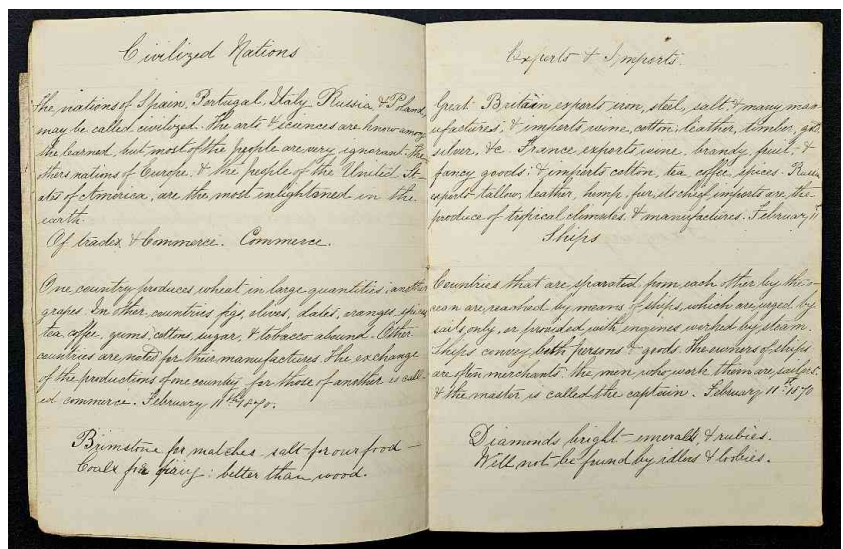 Civilized Nations
The nations of Spain, Portugal, Italy, Russia & Poland,
may be called civilized. The arts & sciences are know among
the learned, but most of the people are very ignorant. The
others nations of Europe, & the people of the United St-
ates of America, are the most enlightaned in the
earth.
Of trades & Commerce. Commerce.
One country produces wheat in large quantities, another
grapes. In other countries figs, olives, dates, oranges, spices,
tea, coffee, gums, cottons, sugar, & tobacco abound. Other
countries are noted for their manufactures. The exchange
of the productions of one country, for those of another is call-
ed commerce. February 11th 1870.
Brimstone for matches salt for our food —
Coals for firing: better than wood.
Exports & Imports.
Great Britain exports iron, steel, salt & many man-
ufactures; & imports wine, cotton, leather, timber, gold,
silver, &c. France exports wine, brandy, fruit, &
fancy goods: & imports cotton, tea, coffee, spices. Russia
exports tallow, leather, hemp, fur, its chief imports are the
produce of tropical climates, & manufactures. February 11
Ships
Countries that are sparated from each other by the o-
cean are reached by means of ships, which are urged by
sails only, or provided with engines worked by steam.
Ships convey both persons & goods. The owners of ships
are often merchants: the men who work them are sailors:
& the master is called the captain. February 11th 1870
Diamonds bright emeralds & rubies.
Will not be found by idlers & loobies.